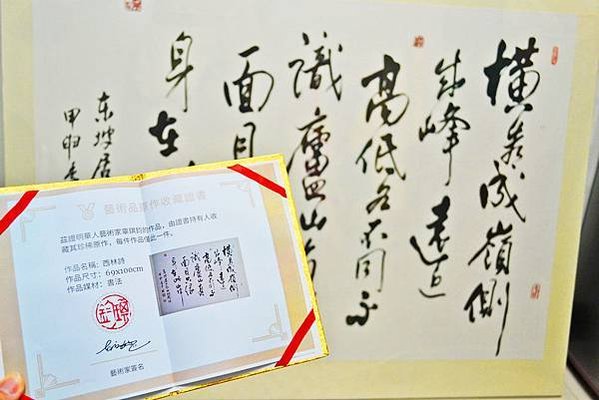 橫看成嶺側
成峰遠近
高低各不同不
識廬山真
面目
身在
东坡居
甲申
藝術品原作收藏證書
茲證明華人藝術家的作品，由證書持有人收
藏其珍稀原作，每件作品僅此一件。
作品名稱：西林詩
作品尺寸：69x106cm
作品媒材：書法
藝術家簽名